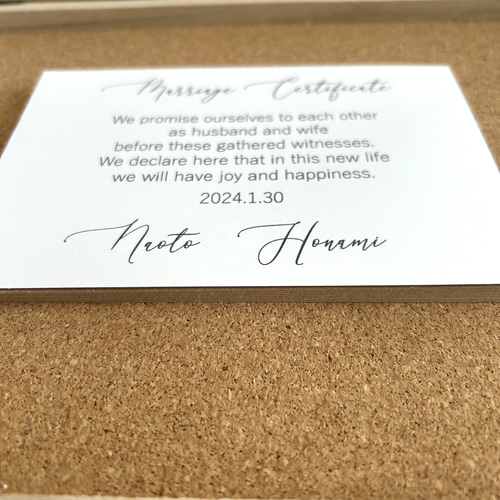 Marriage Certificate
We promise ourselves to each other
as husband and wife
before these gathered witnesses.
We declare here that in this new life
we will have joy and happiness.
2024.1.30
Naoto Honami